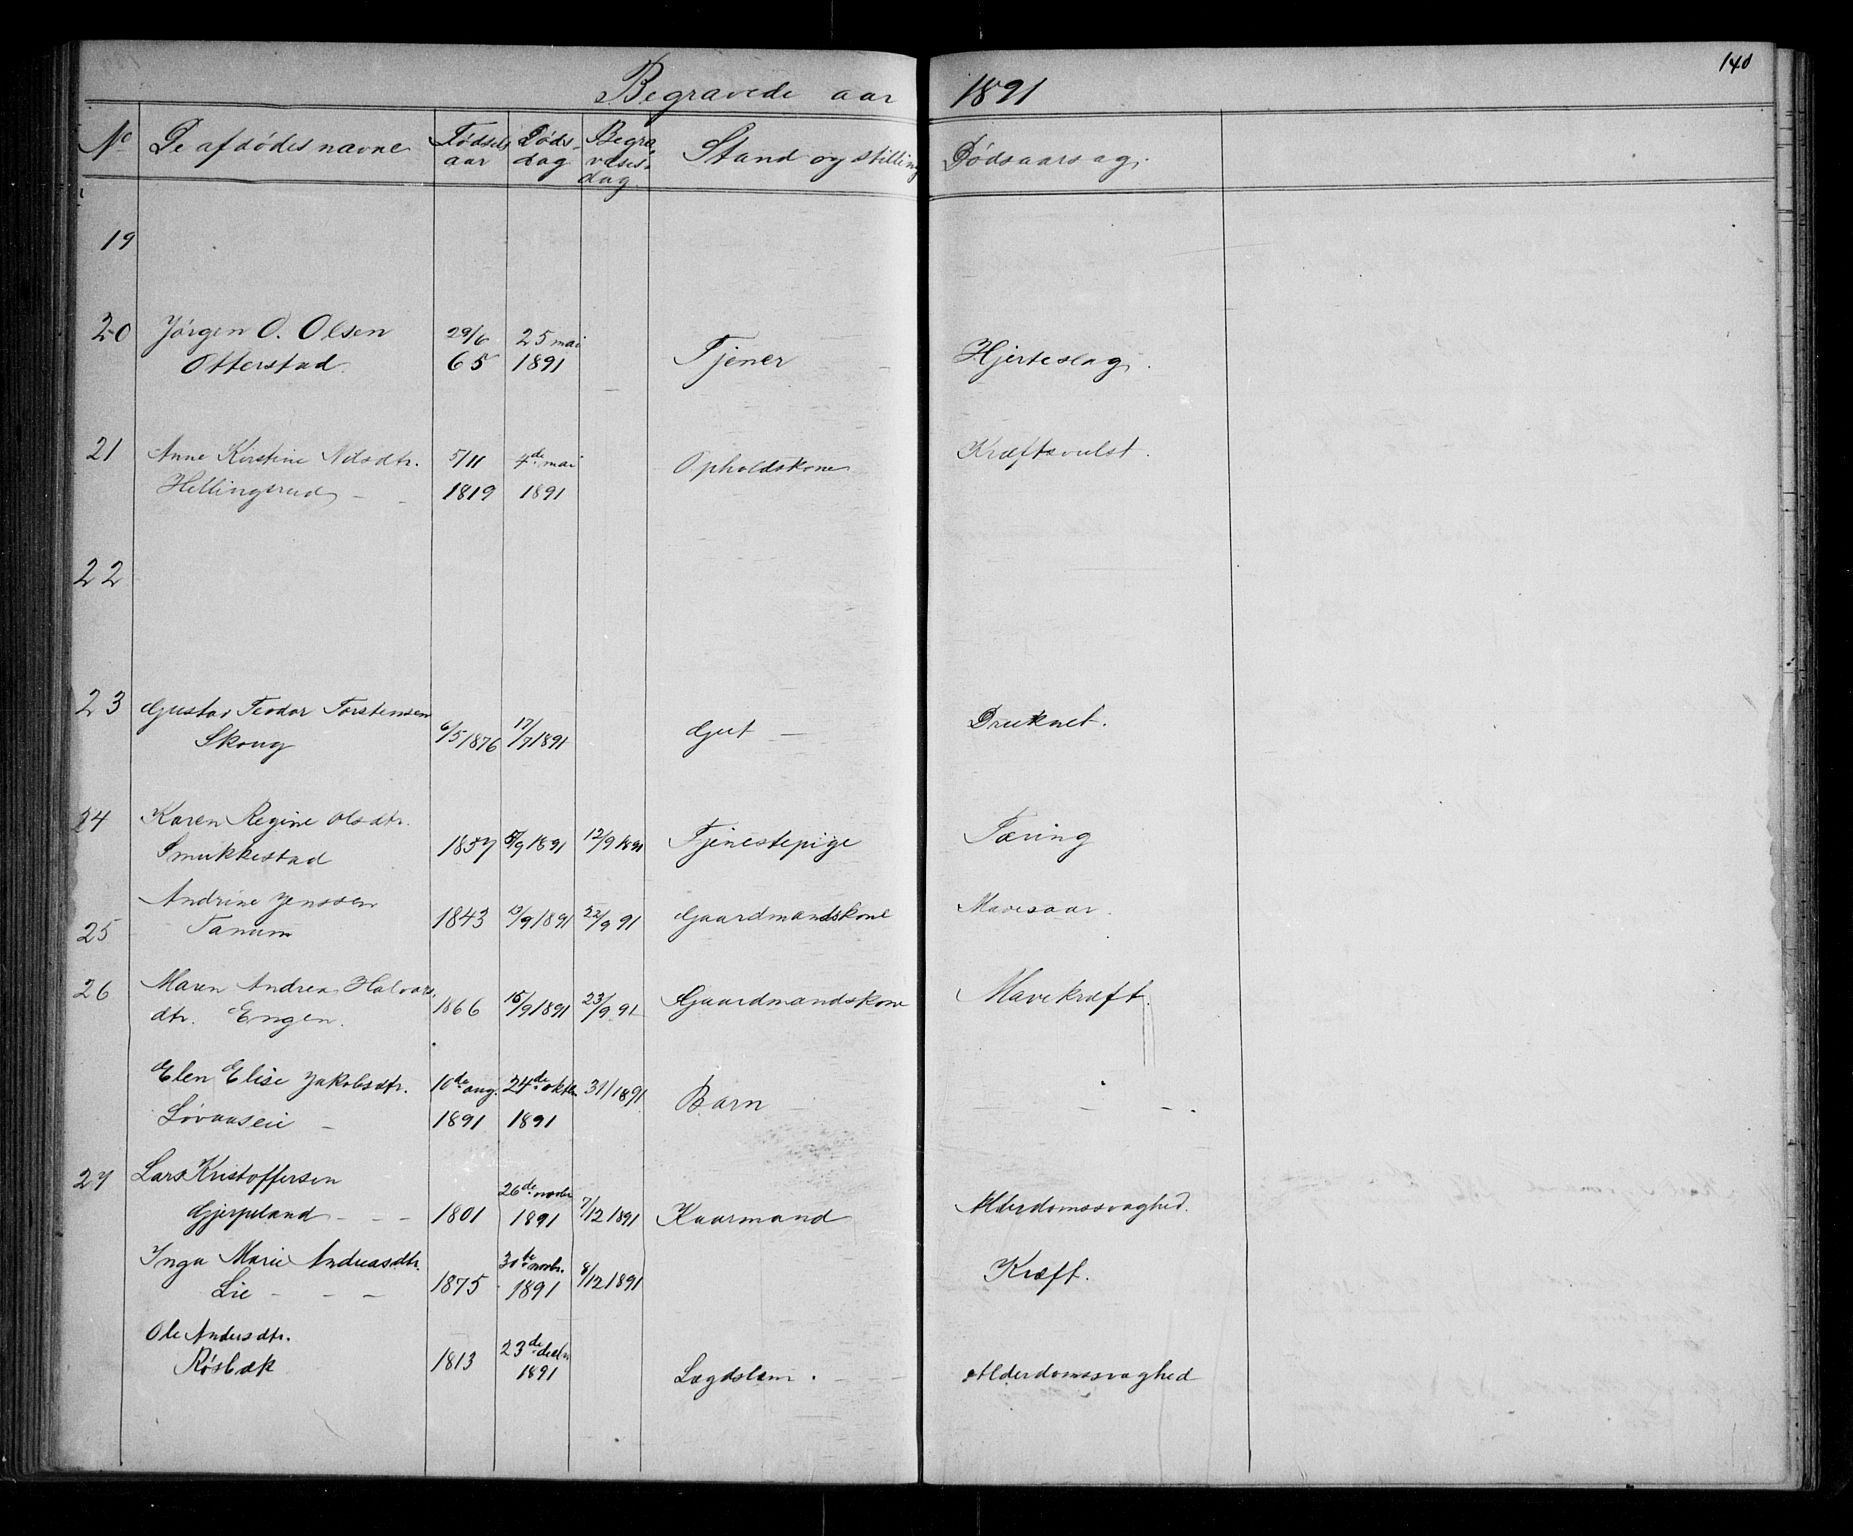 140
Begravede aar 1891
No De afdødes navne Fødsels aar Døds- dag Begra- velses- dag Stand og stilling Dødsaarsag.
19
20 Jørgen O. Olsen 29/6 25 mai
Otterstad 65 1891 Tjener Hjerteslag.
21 Anne Kirstine Nilsdtr. 5/11 4de mai Opholdskone Kræftsvulst.
Hellingsrud 1819 1891
22
23 Gustav Teodor Torstensen
Skoug 6/5 1876 17/7 1891 Gut Druknet.
24 Karen Regine Olsdtr.
Smukkestad 1857 5/9 1891 12/9 1891 Tjenestepige Tæring
Andrine Jenssen
25 Tanum 1843 /9 1891 22/9 91 Gaardmandskone Mavesaar.
26 Maren Andrea Halvors
dtr. Engen. 1866 15/9 1891 23/9 91 Gaardmandskone Mavekræft.
Elen Elise Jakobsdtr. 10de aug. 24de oktbr 31/ 1891 Barn - - -.
Løvaaseie - 1891 1891
27 Lars Kristoffersen 26de novbr
Gjerpeland - - - 1801 1891 7/12 1891 Kaarmand Alderdomssvaghed.
Inga Marie Andreasdtr. 30te novbr.
Lie - - - 1875 1891 8/12 1891 Kræft.
Ole Andersdtr. 23de decbr
Røsbæk 1813 1891 Lægdslem. - - Alderdomssvaghed